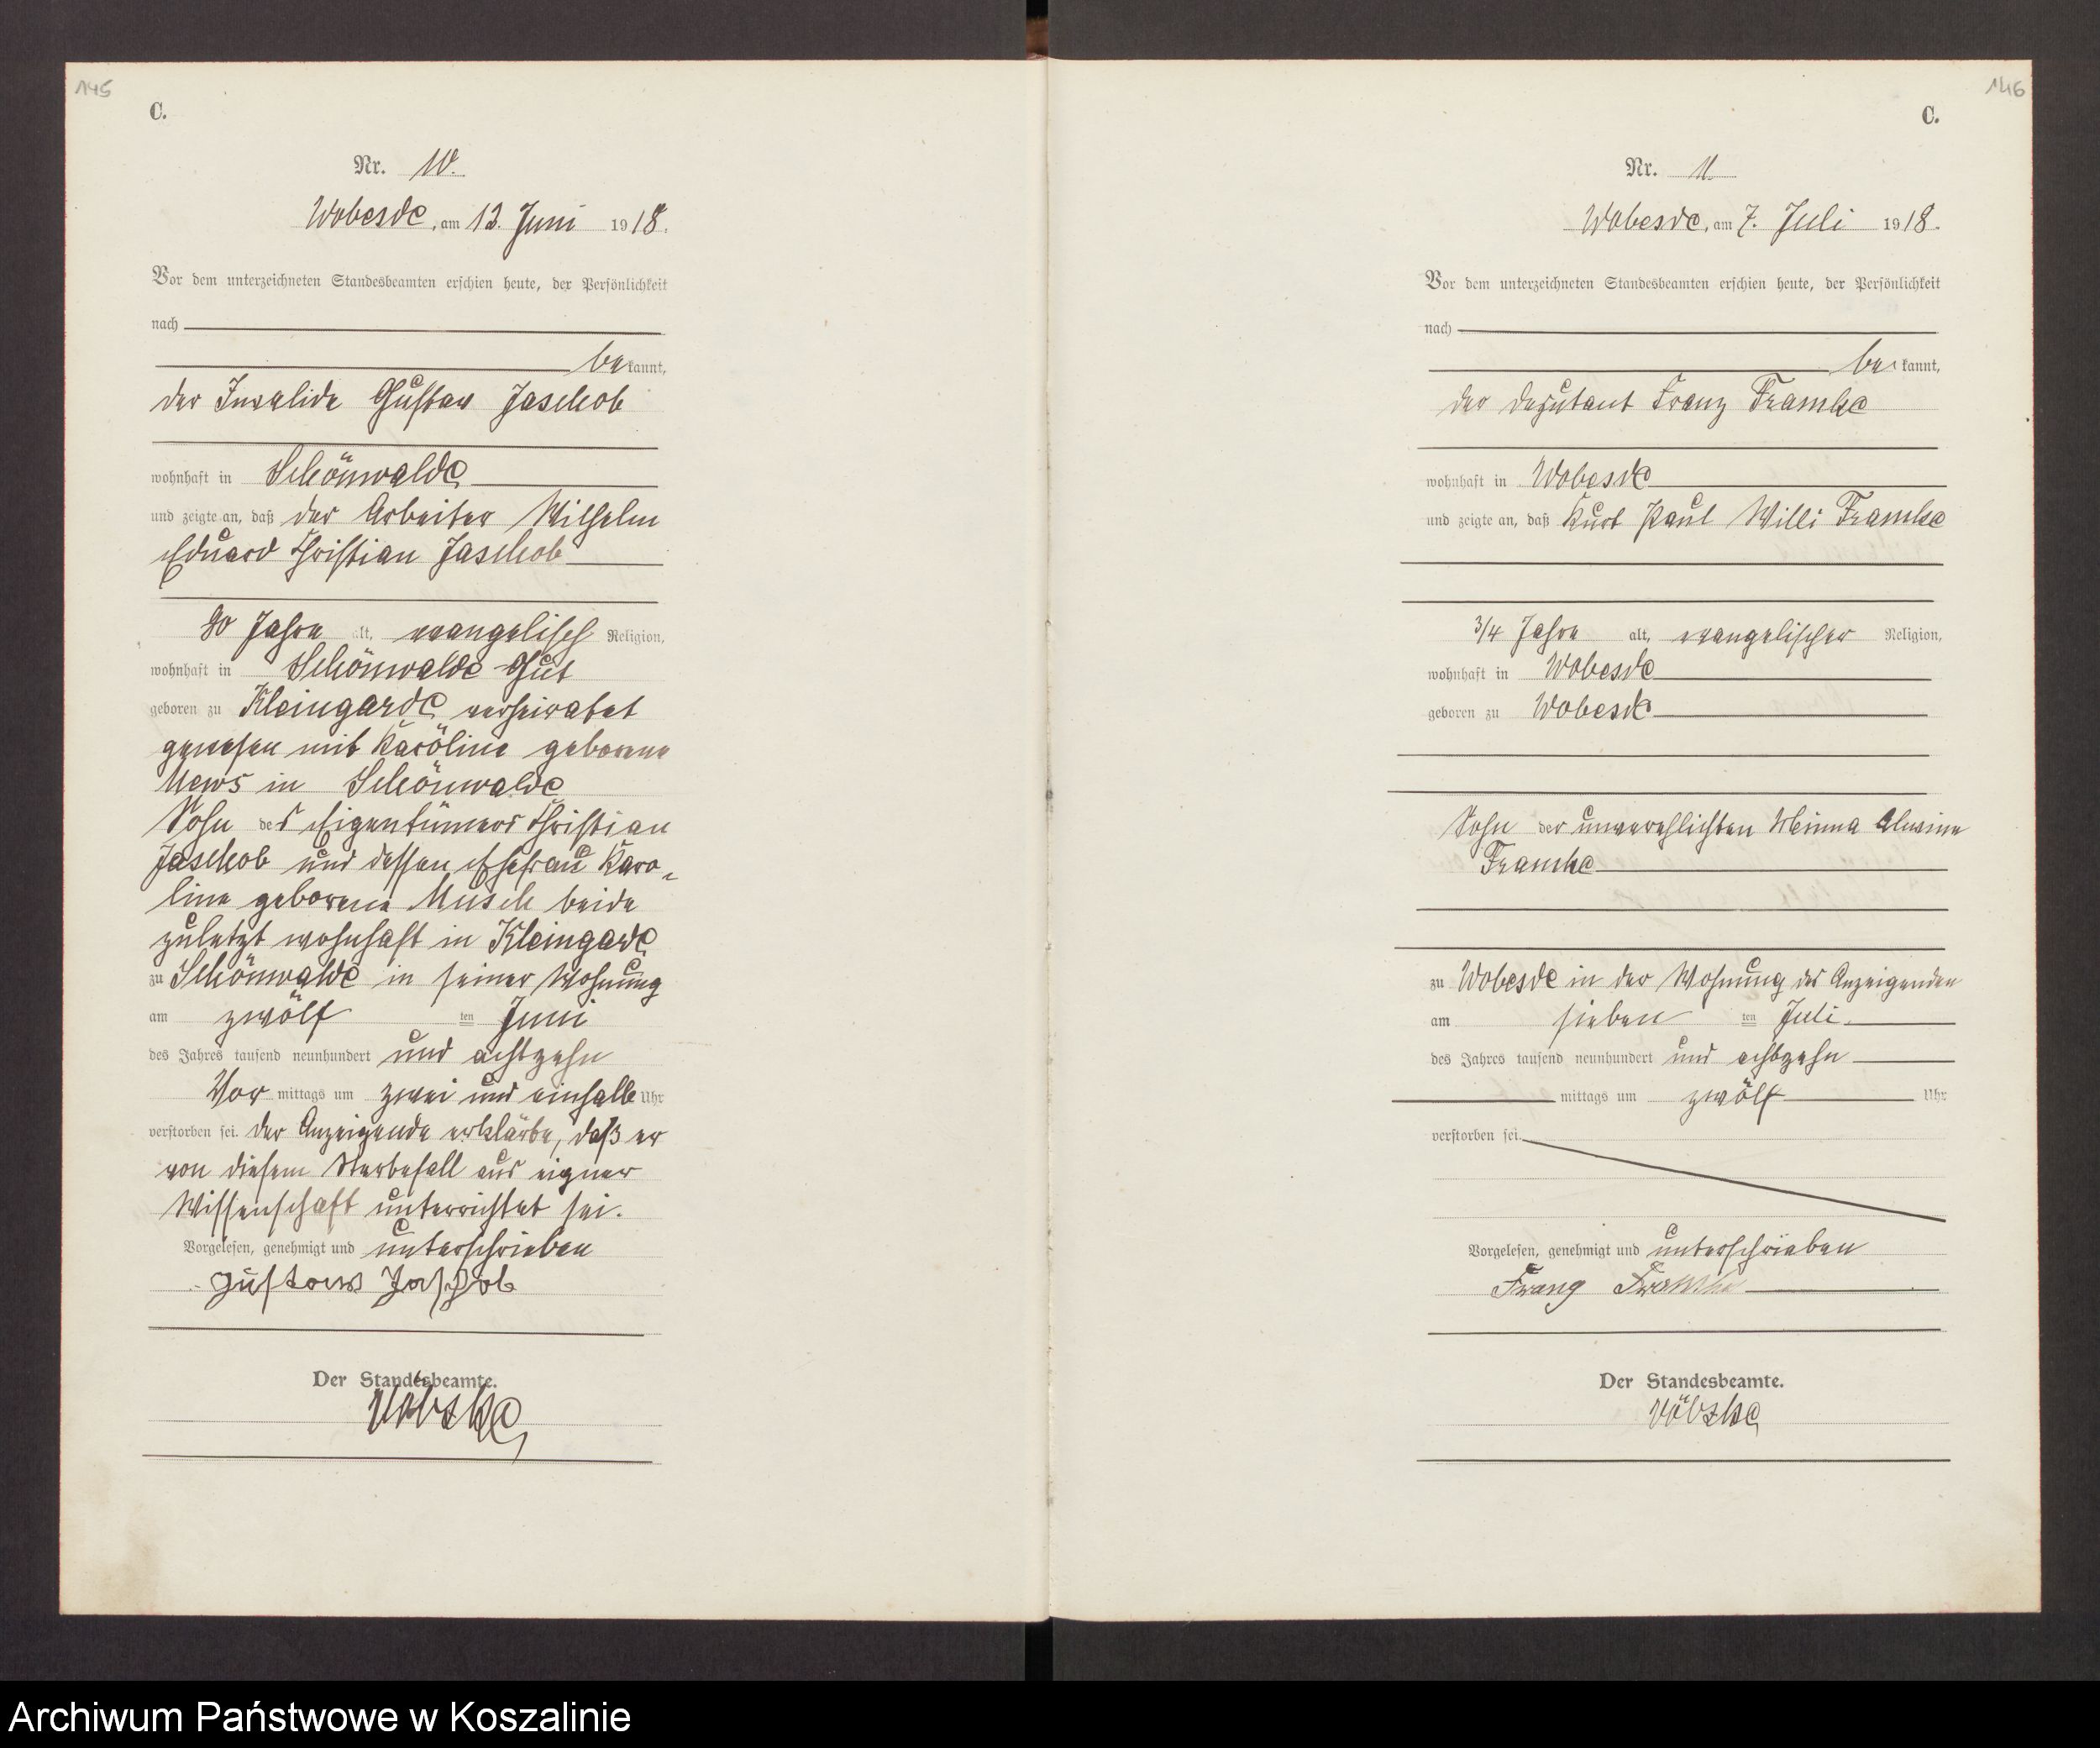 145
C.
Nr. 10.
Wobesde, am 13. Juni 1918.
Vor dem unterzeichneten Standesbeamten erschien heute, der Persönlichkeit
nach
bekannt,
der Invalide Gustav Jaschob
wohnhaft in Schönwalde
und zeigte an, daß der Arbeiter Wilhelm
Eduard Christian Jaschob
Jahre alt, evangelisch Religion,
wohnhaft in Schönwalde Gut
geboren zu Kleingarde verheiratet
gewesen mit Karoline geborene
in Schönwalde
Sohn des Eigentümers Christian
Jaschob und dessen Ehefrau Karo-
line geborene Musch beide
zuletzt wohnhaft in Kleingarde
zu Schönwalde in seiner Wohnung
am zwölf ten Juni
des Jahres tausend neunhundert und achtzehn
Vor mittags um zwei und einhalb Uhr
verstorben sei. Der Anzeigende erklärte, daß er
von diesem Sterbefall aus eigner
Wissenschaft unterrichtet sei.
Vorgelesen, genehmigt und unterschrieben
Gustav Jaschob
Der Standesbeamte.
146
C.
Nr. 11
Wobesde, am 7. Juli 1918.
Vor dem unterzeichneten Standesbeamten erschien heute, der Persönlichkeit
nach
bekannt,
der Deputant Franz Framke
wohnhaft in Wobesde
und zeigte an, daß Kurt Paul Willi Framke
3/4 Jahre alt, evangelischer Religion,
wohnhaft in Wobesde
geboren zu Wobesde
Sohn der unverehlichten Minna Alwine
Framke
zu Wobesde in der Wohnung des Anzeigenden
am sieben ten Juli
des Jahres tausend neunhundert und achtzehn
mittags um zwölf Uhr
verstorben sei.
Vorgelesen, genehmigt und unterschrieben
Franz Framke
Der Standesbeamte.
Archiwum Państwowe w Koszalinie